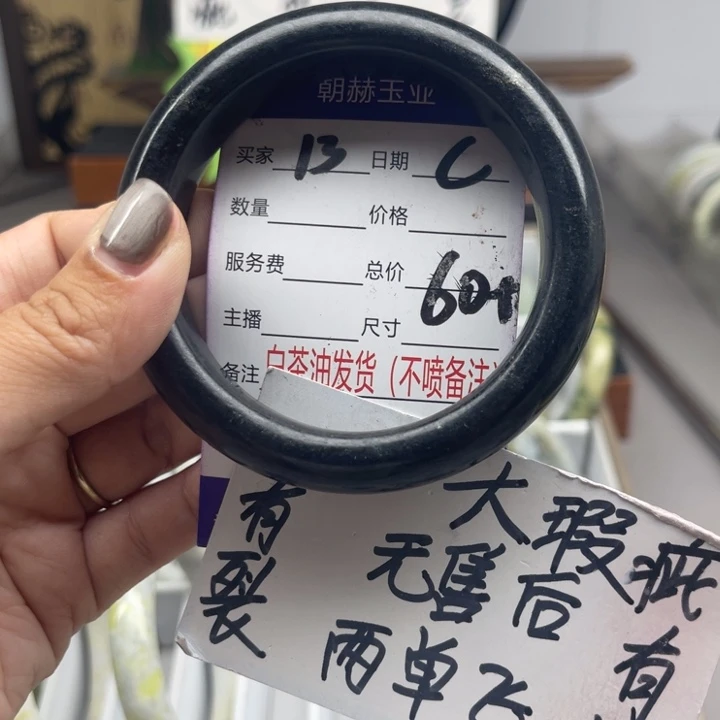 朝赫玉业
买家 13 日期 C
数量 价格
服务费 总价
60
主播 尺寸
备注 白茶油发货（不喷备注）
有裂
大瑕疵
无售后
两单飞
有